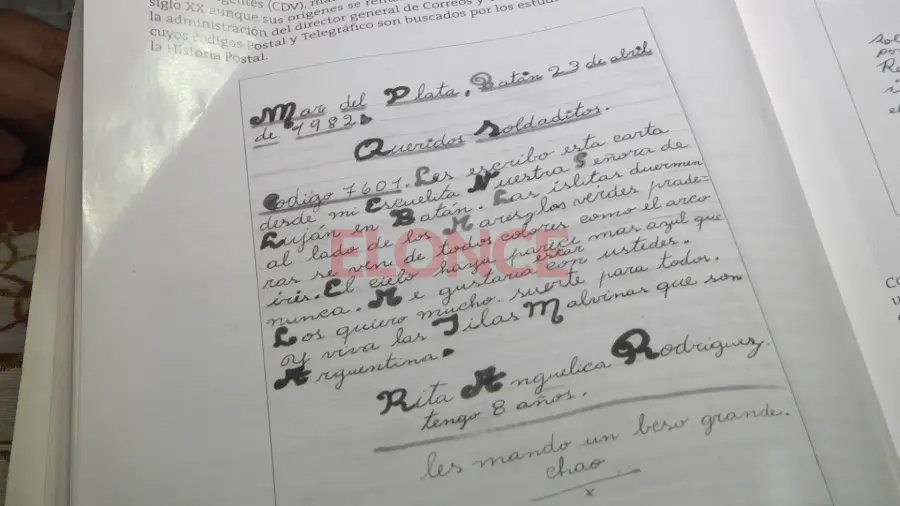 gentes (CDV), ma
siglo XX aunque sus orígenes se rem
la administración del director general de Correos y
cuyos códigos Postal y Telegráfico son buscados por los estud
la Historia Postal.
Mar del Plata, Batán 23 de abril
de 1982.
Queridos Soldaditos.
Codigo 7601. Les escribo esta carta
desde mi Escuelita Nuestra Señora de
Luján en Batán. Las islitas duermen
al lado de los Mares y los verdes prade=
ras se ven de todos colores como el arco
iris. El cielo haya parece mas azul que
nunca. Me gustaria estar con ustedes.
Los quiero mucho. suerte para todos.
y viva las Islas Malvinas que son
Argentina.
Rita Anguelica Rodriguez.
tengo 8 años.
les mando un beso grande.
chao
x
ELONCE